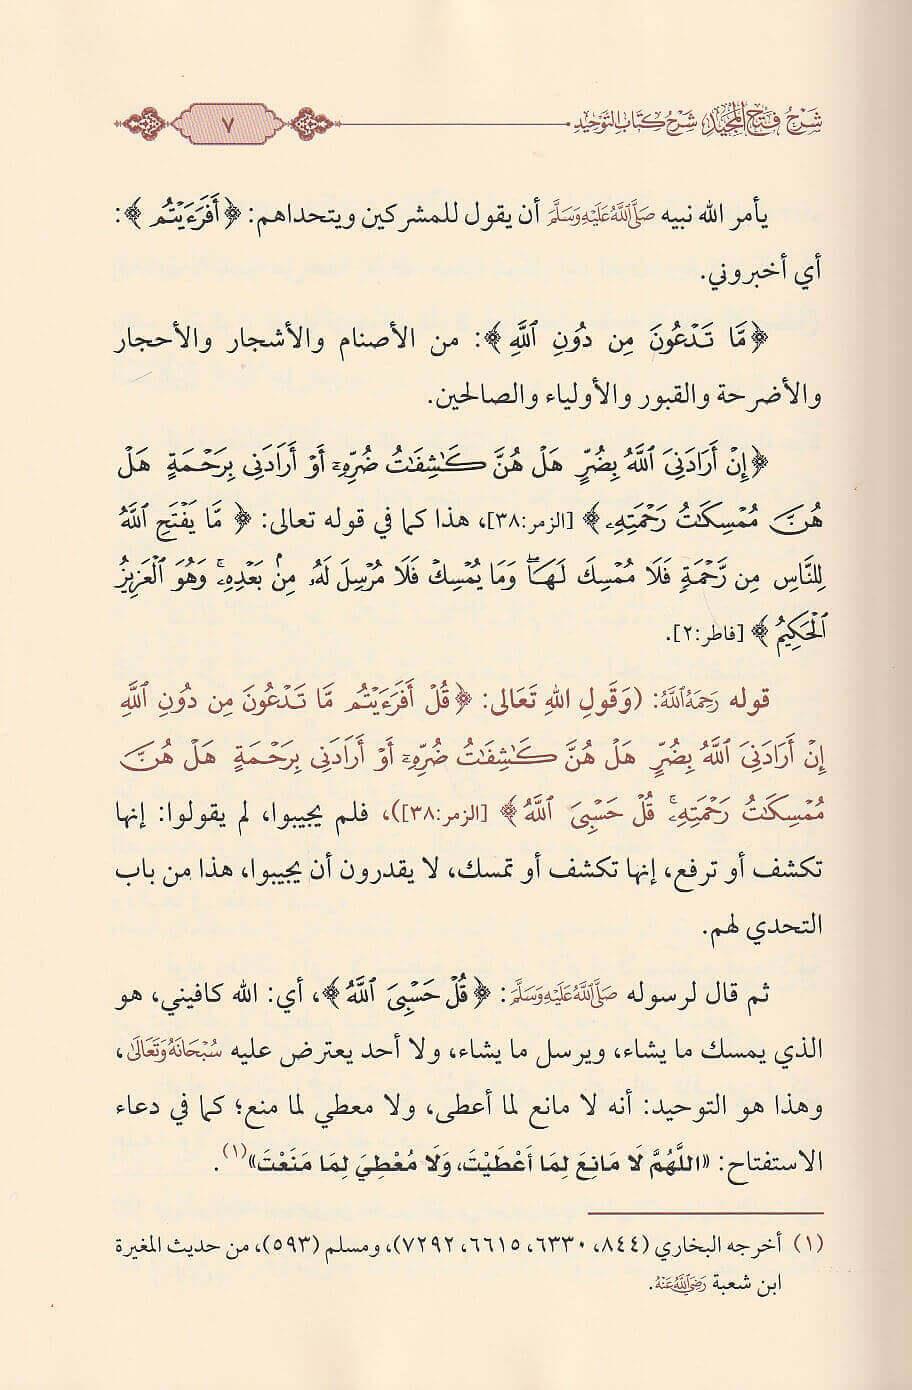 شَرْحُ فَتْحِ الْمَجِيدِ شَرْحُ كِتَابِ التَّوْحِيدِ
٧
يأمر الله نبيه صَلَّى اللَّهُ عَلَيْهِ وَسَلَّمَ أن يقول للمشركين ويتحداهم: ﴿أَفَرَءَيْتُم﴾:
أي أخبروني.
﴿مَّا تَدْعُونَ مِن دُونِ ٱللَّهِ﴾: من الأصنام والأشجار والأحجار
والأضرحة والقبور والأولياء والصالحين.
﴿إِنْ أَرَادَنِيَ ٱللَّهُ بِضُرٍّ هَلْ هُنَّ كَٰشِفَٰتُ ضُرِّهِۦٓ أَوْ أَرَادَنِي بِرَحْمَةٍ هَلْ
هُنَّ مُمْسِكَٰتُ رَحْمَتِهِۦ﴾ [الزمر:٣٨]، هذا كما في قوله تعالى: ﴿مَّا يَفْتَحِ ٱللَّهُ
لِلنَّاسِ مِن رَّحْمَةٍ فَلَا مُمْسِكَ لَهَاۖ وَمَا يُمْسِكْ فَلَا مُرْسِلَ لَهُۥ مِنۢ بَعْدِهِۦۚ وَهُوَ ٱلْعَزِيزُ
ٱلْحَكِيمُ﴾ [فاطر:٢].
قوله رَحِمَهُ اللَّهُ: (وَقَولِ اللهِ تَعَالى: ﴿قُلْ أَفَرَءَيْتُم مَّا تَدْعُونَ مِن دُونِ ٱللَّهِ
إِنْ أَرَادَنِيَ ٱللَّهُ بِضُرٍّ هَلْ هُنَّ كَٰشِفَٰتُ ضُرِّهِۦٓ أَوْ أَرَادَنِي بِرَحْمَةٍ هَلْ هُنَّ
مُمْسِكَٰتُ رَحْمَتِهِۦۚ قُلْ حَسْبِيَ ٱللَّهُ﴾ [الزمر:٣٨])، فلم يجيبوا، لم يقولوا: إنها
تكشف أو ترفع، إنها تكشف أو تمسك، لا يقدرون أن يجيبوا، هذا من باب
التحدي لهم.
ثم قال لرسوله صَلَّى اللَّهُ عَلَيْهِ وَسَلَّمَ: ﴿قُلْ حَسْبِيَ ٱللَّهُ﴾، أي: الله كافيني، هو
الذي يمسك ما يشاء، ويرسل ما يشاء، ولا أحد يعترض عليه سُبْحَانَهُ وَتَعَالَى،
وهذا هو التوحيد: أنه لا مانع لما أعطى، ولا معطي لما منع؛ كما في دعاء
الاستفتاح: «اللَّهُمَّ لَا مَانِعَ لِمَا أَعْطَيْتَ، وَلَا مُعْطِيَ لِمَا مَنَعْتَ»(١).
(١) أخرجه البخاري (٨٤٤، ٦٣٣٠، ٦٦١٥، ٧٢٩٢)، ومسلم (٥٩٣)، من حديث المغيرة
ابن شعبة رَضِيَ اللَّهُ عَنْهُ.